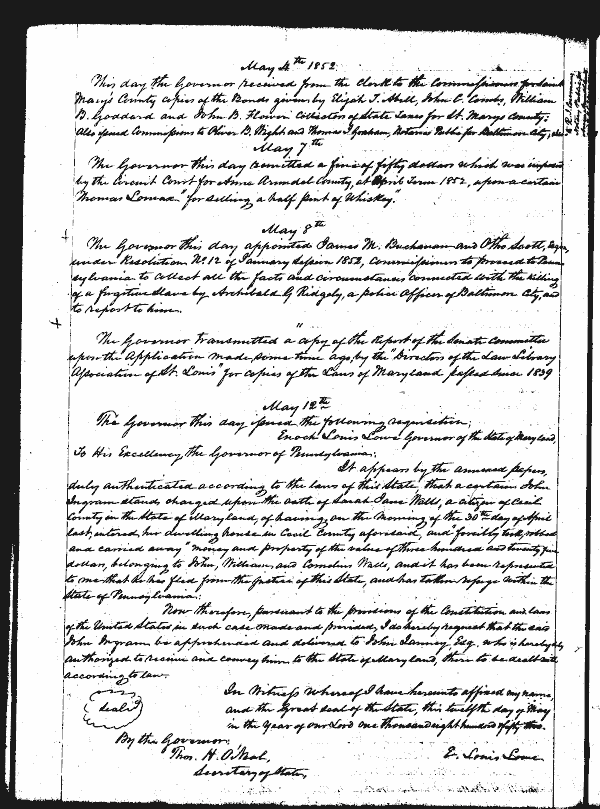 May 4th 1852.
This day the Governor received from the Clerk to the Commissioners for Saint
Mary's County copies of the Bonds given by Elijah T. Abell, John C. Combs, William
B. Goddard and John B. Flower Collectors of State Taxes for St. Marys County;
Also issued Commissions to Oliver B. Wight and Thomas I Graham, Notaries Public for Baltimore City,
May 7th
The Governor this day remitted a fine of fifty dollars which was imposed
by the Circuit Court for Anne Arundel County, at April Term 1852, upon a certain
Thomas Lomax "for selling a half pint of Whiskey."
May 8th
The Governor this day appointed James M. Buchanan and Otho Scott, Esqrs,
under Resolution No. 12 of January Session 1852, Commissioners to proceed to Penn
sylvania to collect all the facts and circumstances connected with the killing
of a fugitive slave by Archibald G Ridgely, a police Officer of Baltimore City, and
to report to him.
"
The Governor transmitted a copy of the Report of the Senate Committee
upon the Application made, some time ago, by the "Directors of the Law Library
Association of St. Louis" for copies of the Laws of Maryland passed since 1839
May 12th
The Governor this day issued the following requisition;
Enoch Louis Lowe Governor of the State of Maryland,
To His Excellency, the Governor of Pennsylvania:
It appears by the annexed papers,
duly authenticated according to the laws of this State, that a certain John
Ingram stands charged upon the oath of Sarah Jane Walls, a citizen of Cecil
County in the State of Maryland, of having, on the morning of the 30th day of April
last, entered, her dwelling house in Cecil County aforesaid, and "forcibly took, robbed
and carried away" money and property of the value of three hundred and twenty five
dollars, belonging to John, William, and Cornelius Walls, and it has been represented
to me that he has fled from the justice of this State, and has taken refuge within the
State of Pennsylvania:
Now therefore, pursuant to the provisions of the Constitution and laws
of the United States in such case made and provided, I do hereby request that the said
John Ingram be apprehended and delivered to John Janney Esq. who is hereby
authorized to receive and convey him to the State of Maryland, there to be dealt with
according to law.
In Witness whereof I have hereunto affixed my name,
seal
and the Great seal of the State, this twelfth day of May
in the Year of our Lord one thousand eight hundred fifty two.
By the Governor
E. Louis Lowe
Thos. H. O'Neal,
Secretary of State,